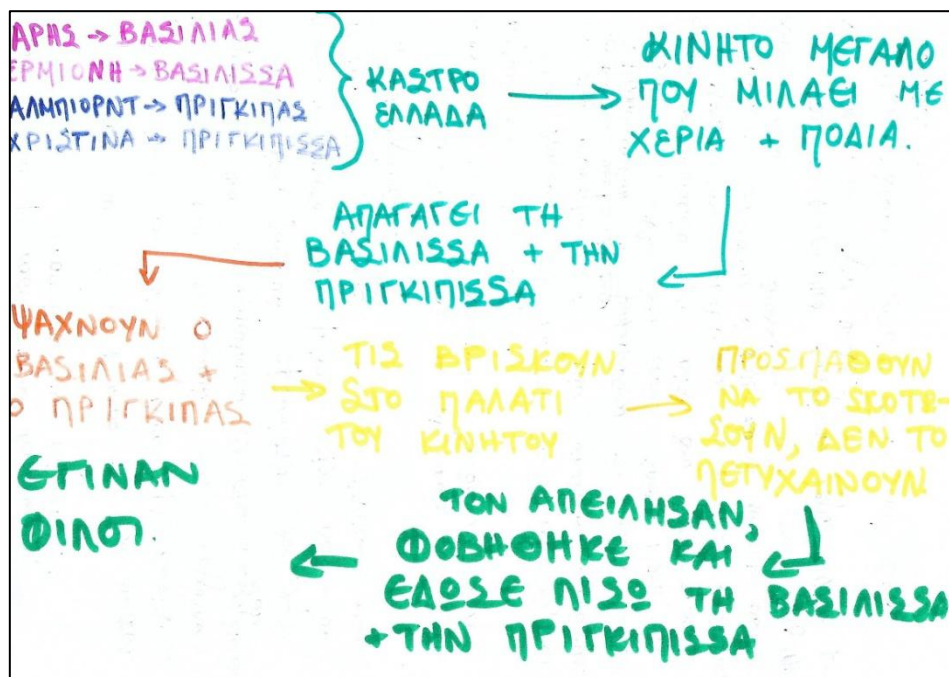 ΑΡΗΣ → ΒΑΣΙΛΙΑΣ
ΕΡΜΙΟΝΗ → ΒΑΣΙΛΙΣΣΑ
ΑΛΜΠΙΟΡΝΤ → ΠΡΙΓΚΙΠΑΣ
ΧΡΙΣΤΙΝΑ → ΠΡΙΓΚΙΠΙΣΣΑ
ΚΑΣΤΡΟ
ΕΛΛΑΔΑ
ΚΙΝΗΤΟ ΜΕΓΑΛΟ
ΠΟΥ ΜΙΛΑΕΙ ΜΕ
ΧΕΡΙΑ + ΠΟΔΙΑ.
ΑΠΑΓΑΓΕΙ ΤΗ
ΒΑΣΙΛΙΣΣΑ + ΤΗΝ
ΠΡΙΓΚΙΠΙΣΣΑ
ΨΑΧΝΟΥΝ Ο
ΒΑΣΙΛΙΑΣ +
Ο ΠΡΙΓΚΙΠΑΣ
ΤΙΣ ΒΡΙΣΚΟΥΝ
ΣΤΟ ΠΑΛΑΤΙ
ΤΟΥ ΚΙΝΗΤΟΥ
ΠΡΟΣΠΑΘΟΥΝ
ΝΑ ΤΟ ΣΚΟΤΩ-
ΣΟΥΝ, ΔΕΝ ΤΟ
ΠΕΤΥΧΑΙΝΟΥΝ
ΤΟΝ ΑΠΕΙΛΗΣΑΝ,
ΦΟΒΗΘΗΚΕ ΚΑΙ
ΕΔΩΣΕ ΠΙΣΩ ΤΗ ΒΑΣΙΛΙΣΣΑ
+ ΤΗΝ ΠΡΙΓΚΙΠΙΣΣΑ
ΕΓΙΝΑΝ
ΦΙΛΟΙ.